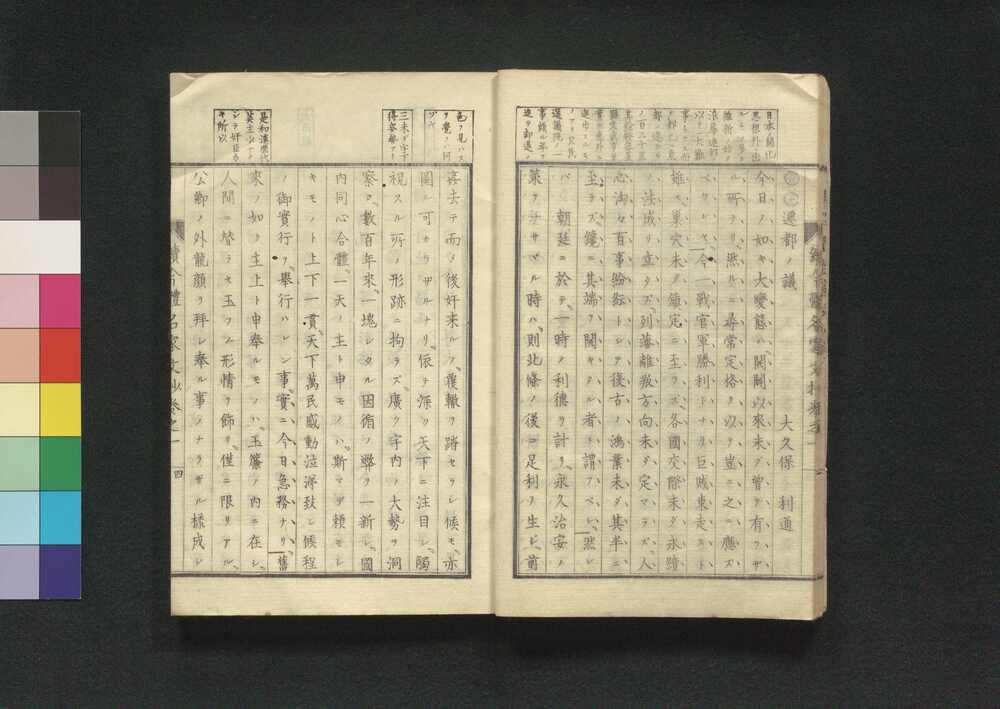 遷都ノ議
大久保 利通
今日ノ如キ大變態ハ開闢以來未ダ曾テ有ラザ
ル所ナリ然ルニ尋常定格ヲ以テ豈ニ之ニ應ズ
ベクンヤ今一戰官軍勝利トナリ巨賊東走スト
雖モ巣穴未ダ鎮定ニ至ラズ各國交際未ダ永續
ノ法成リ立タズ列藩離叛方向未ダ定マラズ人
心洶々百事紛紜トシテ復古ノ鴻業未ダ其半ニ
至ラズ纔ニ其端ヲ開キタル者ト謂フベシ然レ
バ朝廷ニ於テ一時ノ利德ヲ計リ永久治安ノ
策ヲナサザル時ハ則北條ノ後ニ足利ヲ生ジ前
姦去テ而メ後奸来ルノ覆轍ヲ踏セラレ候モ亦
圖ル可カラザルナリ依テ深ク天下ニ注目シ觸
視スル所ノ形跡ニ拘ラズ廣ク宇内ノ大勢ヲ洞
察シ數百年來一塊シタル因循ノ弊ヲ一新シ國
内同心合體一天ノ主ト申モノハ斯マデ賴モシ
キモノト上下一貫天下萬民感動涕泣致シ候程
ノ御實行ヲ舉行ハレン事實ニ今日急務ナリ舊
來ノ如ク主上ト申奉ルモノハ玉簾ノ内ニ在シ
人間ニ替ラセ玉フノ形情ヲ飾リ僅ニ限リアル
公卿ノ外龍顔ヲ拜シ奉ル事ノナラザル樣成シ
續今體名家文抄卷之一
四